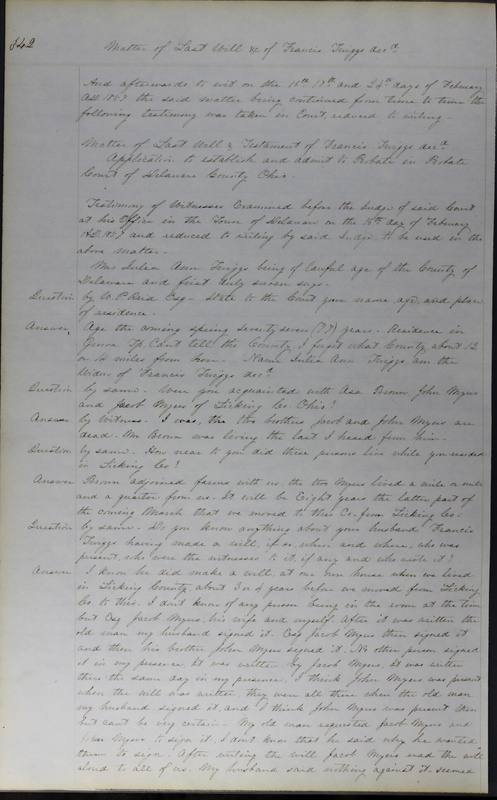 842
Matter of Last Will &c of Francis Triggs decd
And afterwards to wit on the 16th 17th and 24th days of February
AD 1857 the said matter being continued from time to time the
following testimony was taken in Court, reduced to writing.
Matter of Last Will & Testament of Francis Triggs decd
Application to establish and admit to Probate in Probate
Court of Delaware County Ohio.
Testimony of Witnesses Examined before the Judge of said Court
at his Office in the Town of Delaware on the day of February
AD. 1857 and reduced to writing by said Judge to be used in the
above matter.
Mrs Julia Ann Triggs being of lawful age of the County of
Delaware and first duly sworn says.
Question by W. P. Reid Esq - State to the Court your name age, and place
of residence.
Answer, Age the coming spring seventy seven (77) years. Residence in
Genoa Tp. Cant tell the County, I forget what County, about 12
or 14 miles from here. Name Julia Ann Triggs am the
Widow of Francis Triggs decd
Question by same. Were you acquainted with Asa Brown John Myers
and Jacob Myers of Licking Co. Ohio?
Answer by Witness. I was, the two brothers Jacob and John Myers are
dead. Mr Brown was living the last I heard from him.
Question by same. How near to you did these persons live while you resided
in Licking Co?
Answer Brown adjoined farms with us, the two Myers lived a mile or mile
and a quarter from us. It will be Eight years the latter part of
the coming March that we moved to this Co. from Licking Co.
Question by same. Do you know anything about your husband Francis
Triggs having made a will, if so, when and where, who was
present, who were the witnesses to it, if any and who wrote it?
Answer I know he did make a will, at our own house when we lived
in Licking County, about 3 or 4 years before we moved from Licking
Co. to this. I dont know of any person being in the room at the time
but Esq Jacob Myers, his wife and myself. After it was written the
old man my husband signed it. Esq Jacob Myers then signed it
and then his brother John Myers signed it. No other person signed
it in my presence. It was written by Jacob Myers, it was written
there the same day in my presence, I think John Myers was present
when the will was written, they were all there when the old man
my husband signed it, and I think John Myers was present then
but cant be very certain - My old man requested Jacob Myers and
John Myers to sign it, I dont know that he said why he wanted
them to sign. After writing the will Jacob Myers read the will
aloud to all of us. My husband said nothing against it seemed